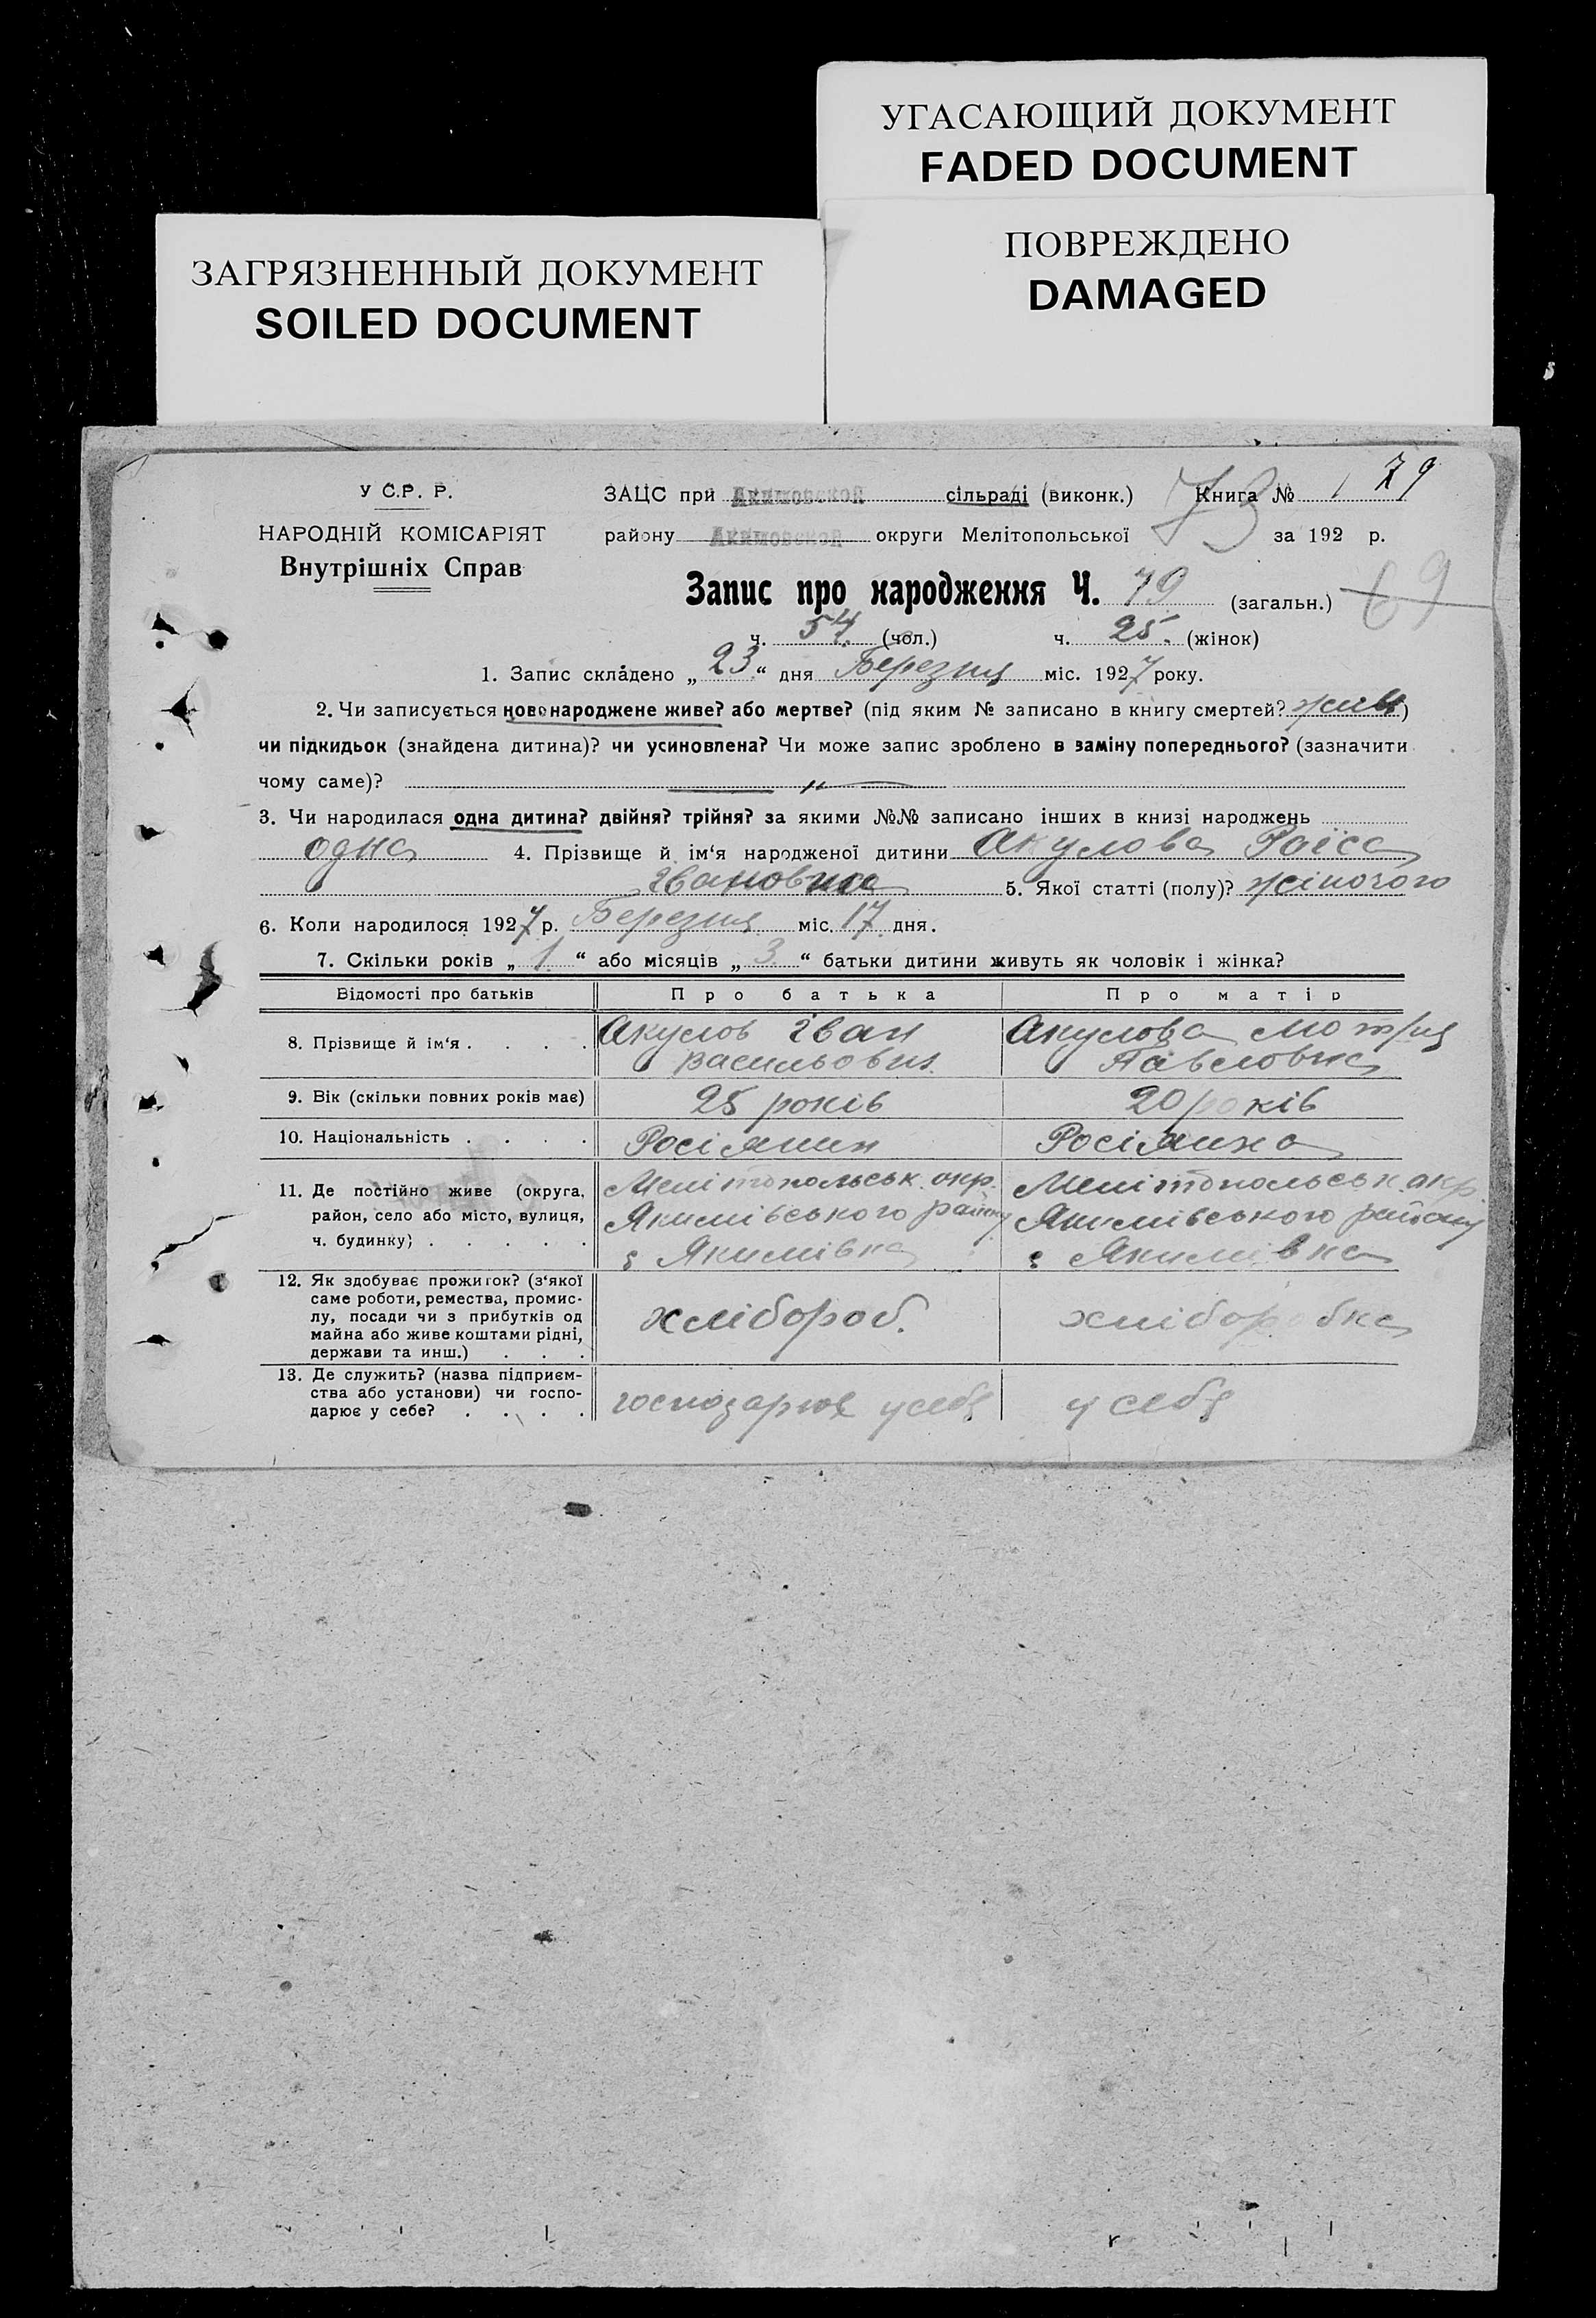 УГАСАЮЩИЙ ДОКУМЕНТ
FADED DOCUMENT
ЗАГРЯЗНЕННЫЙ ДОКУМЕНТ
SOILED DOCUMENT
ПОВРЕЖДЕНО
DAMAGED
79
У С.Р. Р.
НАРОДНІЙ КОМІСАРІЯТ
Внутрішніх Справ
ЗАЦС при Акимовской сільраді (виконк.) 73 Книга № 1
району Акимовской округи Мелітопольської за 192 р.
Запис про народження Ч. 79 (загальн.) 69
ч. 54 (чол.) ч. 25. (жінок)
1. Запис складено „ 23 “ дня Березня міс. 1927 року.
2. Чи записується новонароджене живе? або мертве? (під яким № записано в книгу смертей? живе)
чи підкидьок (знайдена дитина)? чи усиновлена? Чи може запис зроблено в заміну попереднього? (зазначити
чому саме)? — „ —
3. Чи народилася одна дитина? двійня? трійня? за якими №№ записано інших в книзі народжень
одна 4. Прізвище й ім‘я народженої дитини Акулова Раїса
Івановна 5. Якої статті (полу)? жіночого
6. Коли народилося 1927 р. Березня міс. 17 дня.
7. Скільки років „ 1 “ або місяців „ 3 “ батьки дитини живуть як чоловік і жінка?
Відомості про батьків Про батька Про матір
8. Прізвище й ім‘я . . . . Акулов Іван Васильович Акулова Мотря Павловна
9. Вік (скільки повних років має) 25 років 20 років
10. Національність . . . . Росіянин Росіянка
11. Де постійно живе (округа, Мелітопольськ. окр. Мелітопольськ. окр.
район, село або місто, вулиця, Якимівського району Якимівського району
ч. будинку) . . . . . с Якимівка с Якимівка
12. Як здобуває прожиток? (з‘якої
саме роботи, ремества, промис-
лу, посади чи з прибутків од хлібороб. хлібборобка
майна або живе коштами рідні,
держави та инш.) . . .
13. Де служить? (назва підприєм-
ства або установи) чи госпо- господарює у себя у себя
дарює у себе? . . . .